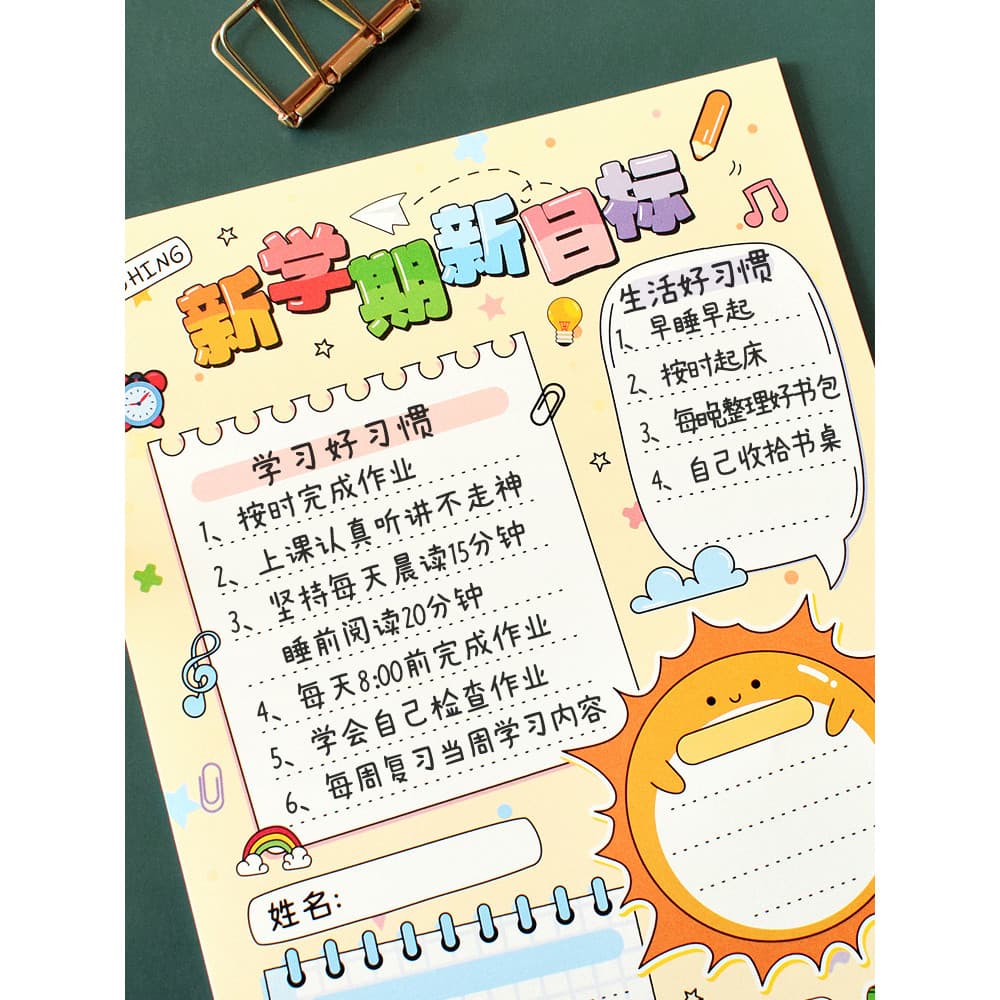 HING
新学期新目标
学习好习惯
1、按时完成作业
2、上课认真听讲不走神
3、坚持每天晨读15分钟
睡前阅读20分钟
4、每天8:00前完成作业
5、学会自己检查作业
6、每周复习当周学习内容
生活好习惯
1、早睡早起
2、按时起床
3、每晚整理好书包
4、自己收拾书桌
姓名: